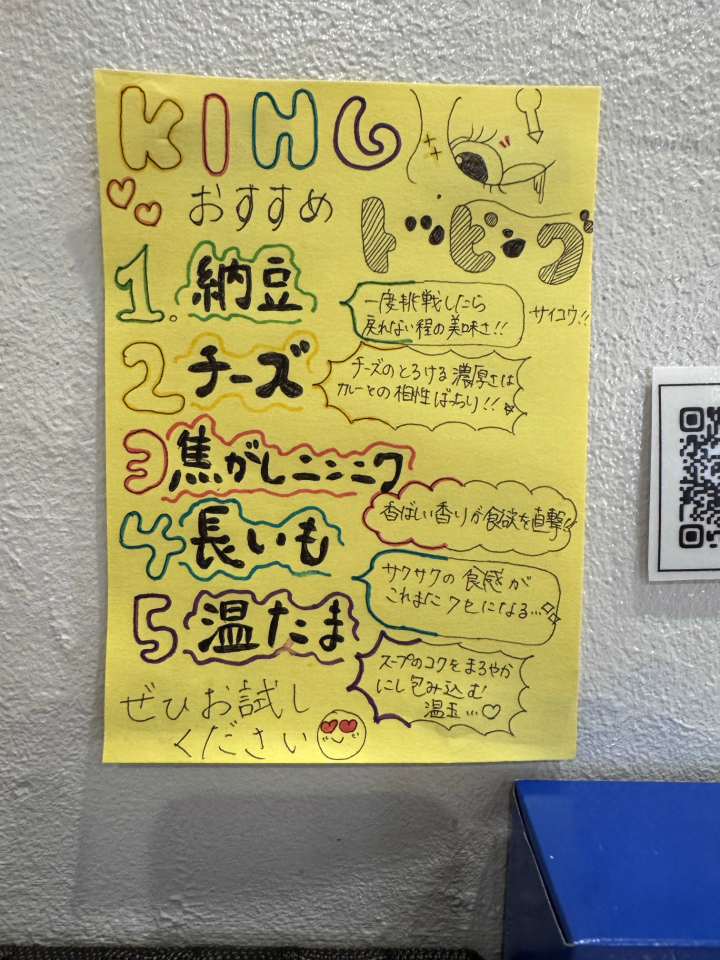 KING
おすすめ
トッピング
1. 納豆
一度挑戦したら
戻れない程の美味さ!!
サイコウ!!
2 チーズ
チーズのとろける濃厚さは
カレーとの相性ばちり!!
3 焦がしニンニク
香ばしい香りが食欲を直撃!!
4 長いも
サクサクの食感が
これまたクセになる...
5 温たま
スープのコクをまろやか
にし包み込む
温玉...♡
ぜひお試し
ください